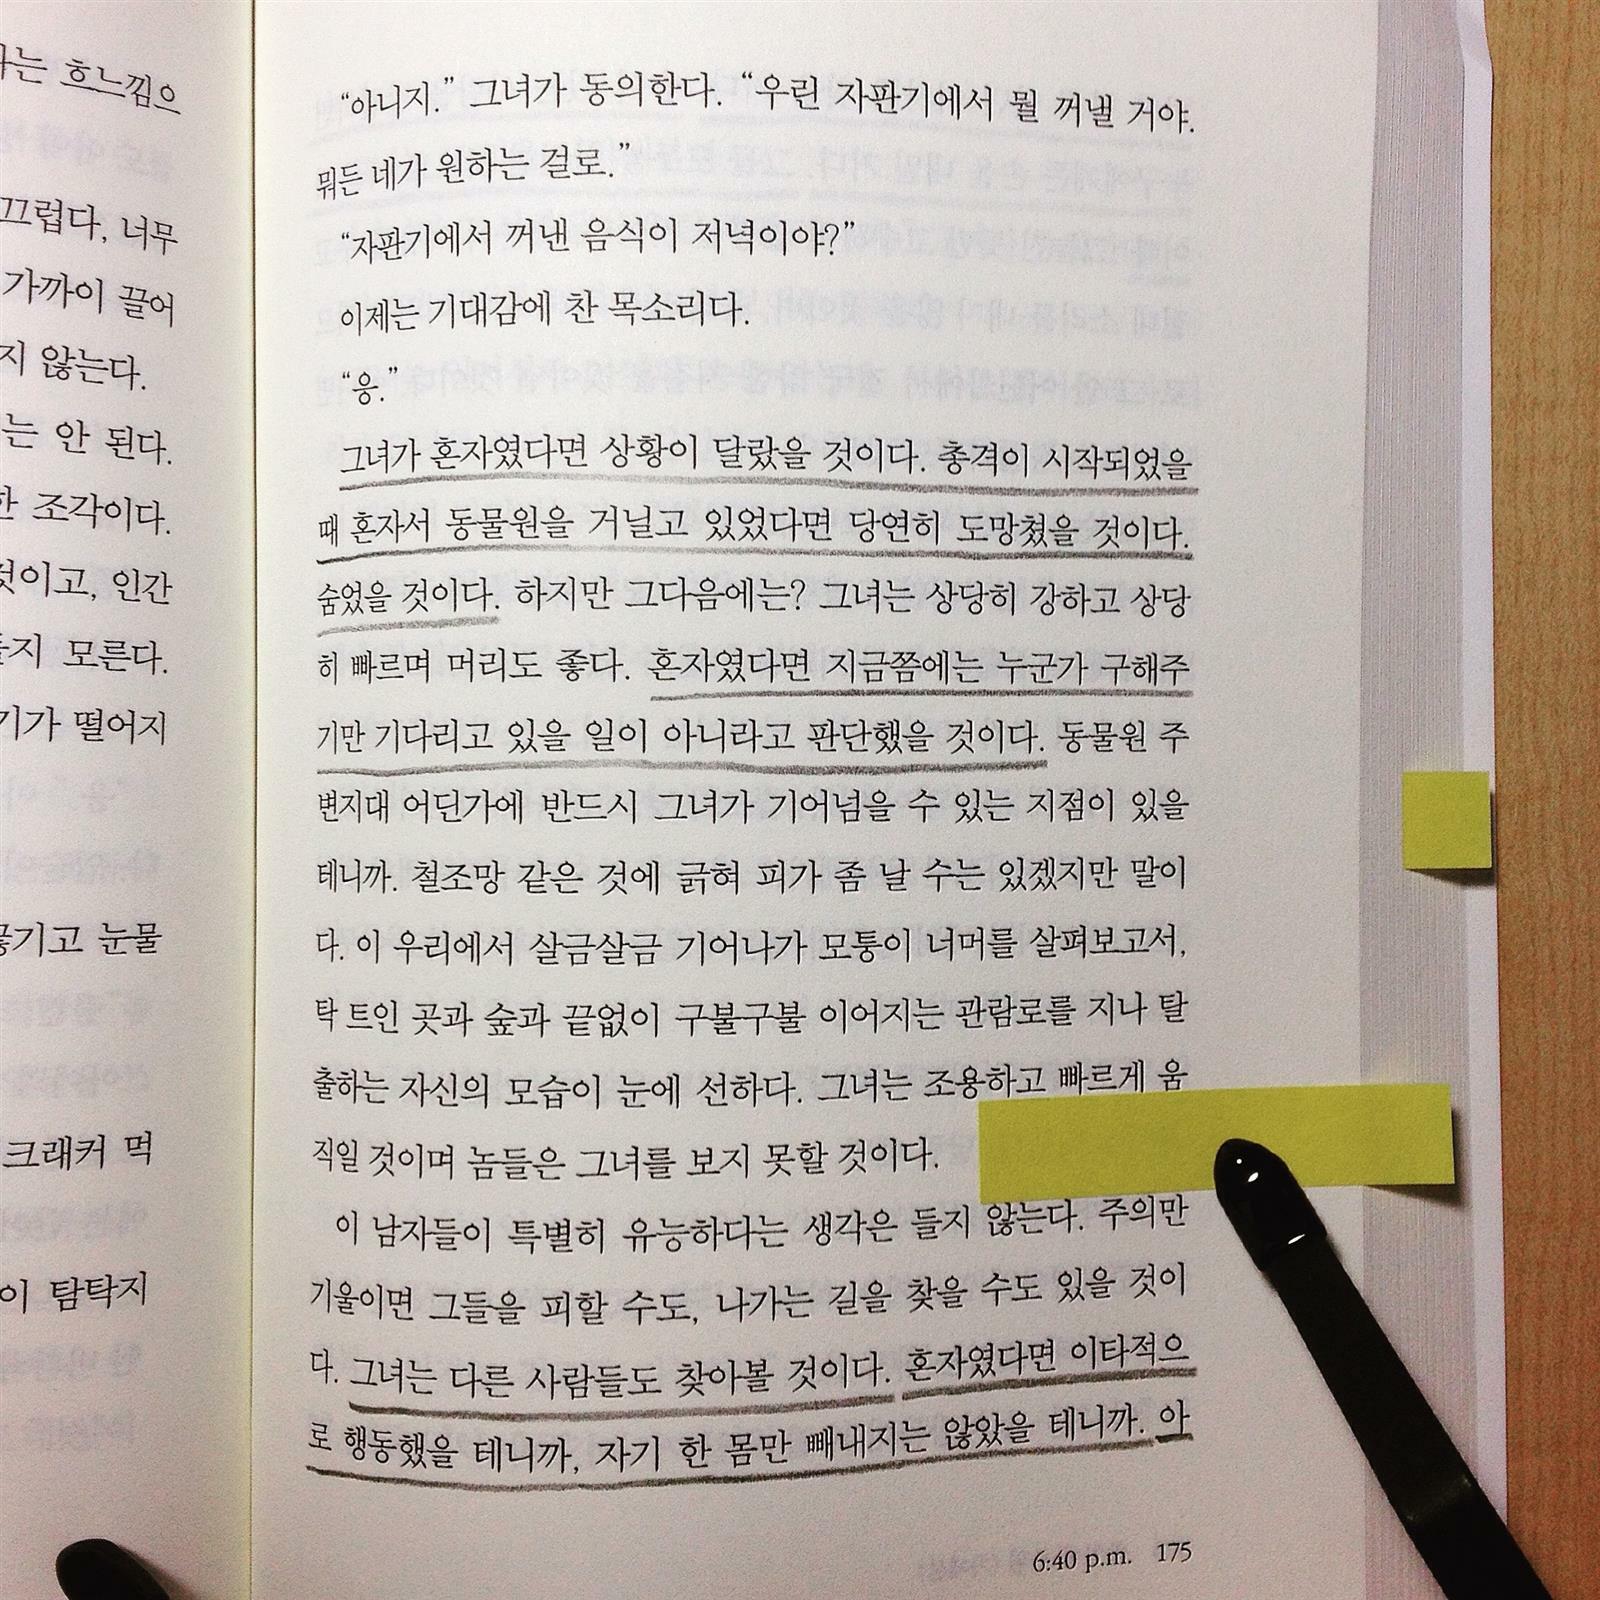 나는 흐느낌으
끄럽다, 너무
가까이 끌어
지 않는다.
는 안 된다.
한 조각이다.
것이고, 인간
지 모른다.
기가 떨어지
끊기고 눈물
크래커 먹
이 탐탁지
“아니지.” 그녀가 동의한다. “우린 자판기에서 뭘 꺼낼 거야.
뭐든 네가 원하는 걸로.”
“자판기에서 꺼낸 음식이 저녁이야?”
이제는 기대감에 찬 목소리다.
“응.”
그녀가 혼자였다면 상황이 달랐을 것이다. 총격이 시작되었을
때 혼자서 동물원을 거닐고 있었다면 당연히 도망쳤을 것이다.
숨었을 것이다. 하지만 그다음에는? 그녀는 상당히 강하고 상당
히 빠르며 머리도 좋다. 혼자였다면 지금쯤에는 누군가 구해주
기만 기다리고 있을 일이 아니라고 판단했을 것이다. 동물원 주
변지대 어딘가에 반드시 그녀가 기어넘을 수 있는 지점이 있을
테니까. 철조망 같은 것에 긁혀 피가 좀 날 수는 있겠지만 말이
다. 이 우리에서 살금살금 기어나가 모퉁이 너머를 살펴보고서,
탁 트인 곳과 숲과 끝없이 구불구불 이어지는 관람로를 지나 탈
출하는 자신의 모습이 눈에 선하다. 그녀는 조용하고 빠르게 움
직일 것이며 놈들은 그녀를 보지 못할 것이다.
이 남자들이 특별히 유능하다는 생각은 들지 않는다. 주의만
기울이면 그들을 피할 수도, 나가는 길을 찾을 수도 있을 것이
다. 그녀는 다른 사람들도 찾아볼 것이다. 혼자였다면 이타적으
로 행동했을 테니까, 자기 한 몸만 빼내지는 않았을 테니까. 아
6:40 p.m. 175